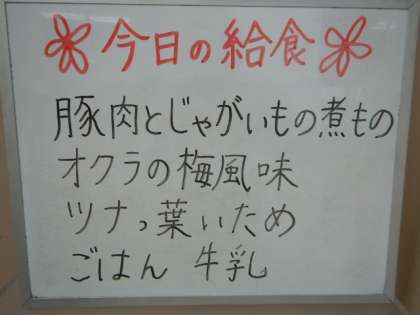 今日の給食
豚肉とじゃがいもの煮もの
オクラの梅風味
ツナっ葉いため
ごはん 牛乳